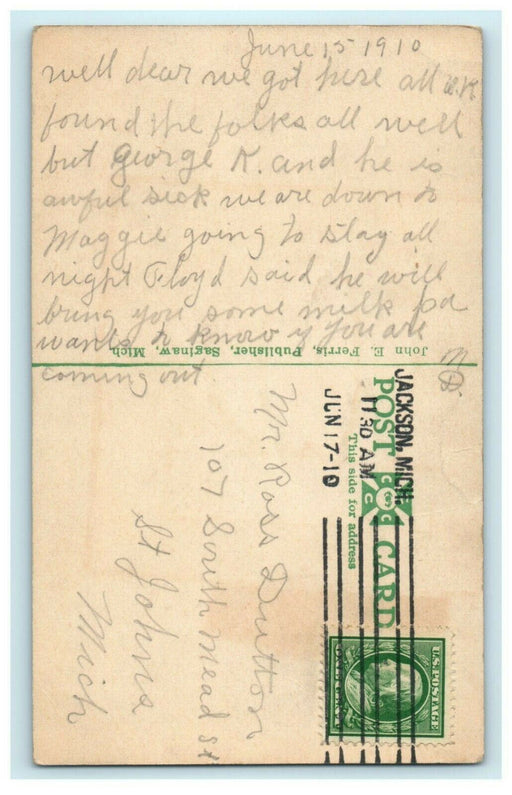 June 15 1910
well dear we got here all O.K.
found the folks all well
but George K. and he is
awful sick we are down to
Maggie going to stay all
night Floyd said he will
bring you some milk pa
wants to know if you are
coming out
M
D.
John E. Ferris, Publisher, Saginaw, Mich.
JACKSON, MICH.
11 30 AM
JUN 17-10
POST CARD
This side for address
Mr. Ross Dutton
107 South Mead St
St Johns
Mich
U.S. POSTAGE